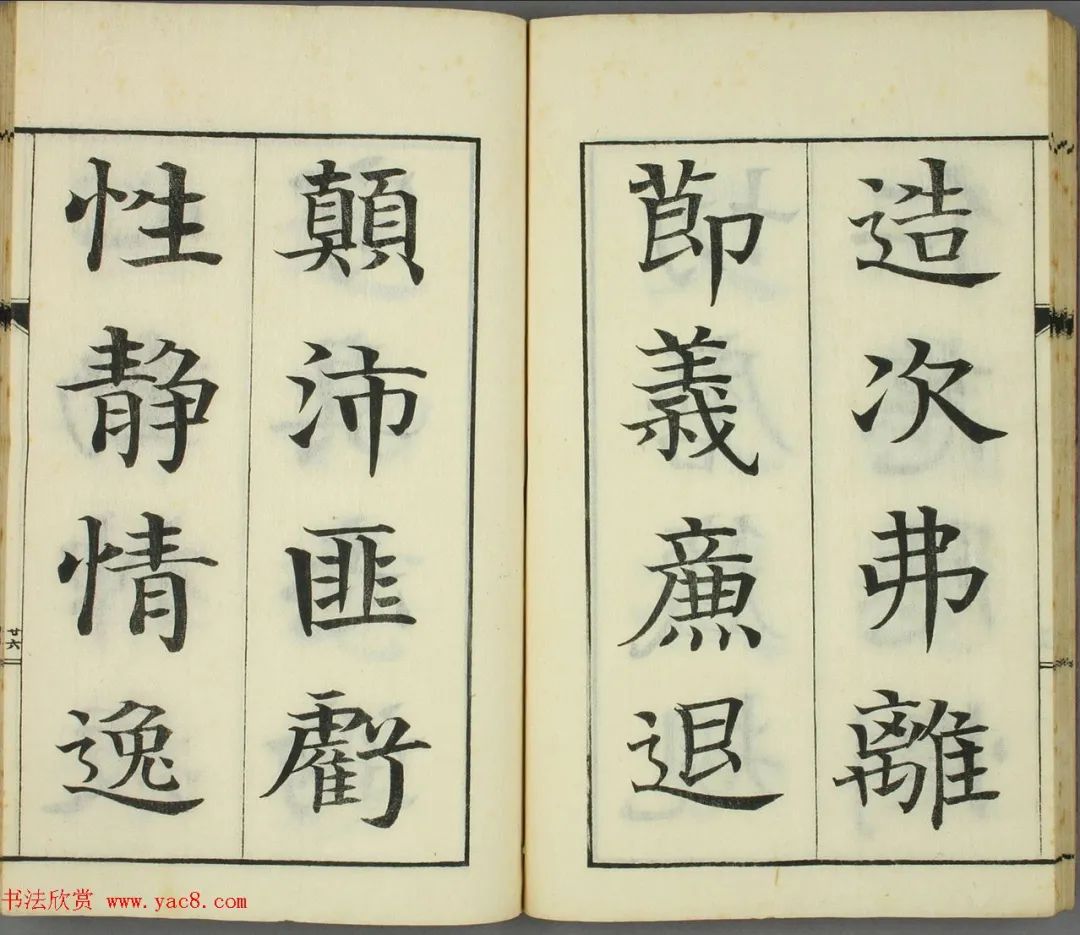 造次弗離
節義廉退
顛沛匪虧
性静情逸
廿六
书法欣赏 www.yac8.com